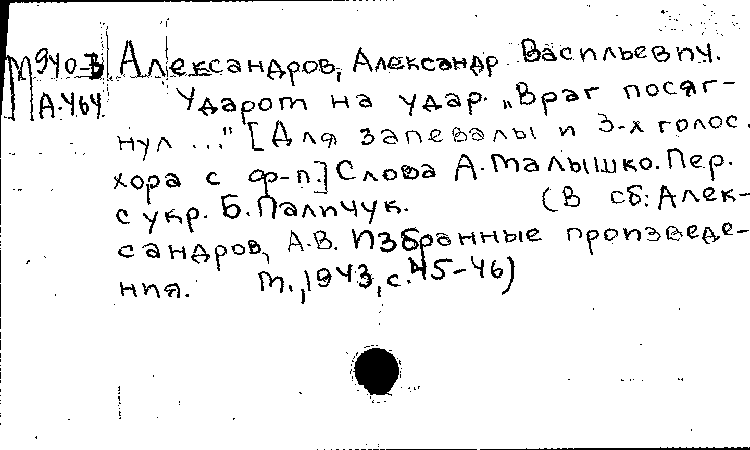 М940-3 Александров, Александр Васильевич.
А.464 Ударом на удар. „Враг посяг-
нул ..." [Для запевалы и 3-х голос.
хора с ф-п.] Слова А. Малышко. Пер.
с укр. Б. Палийчук. (В сб: Алек-
сандров, А.В. Избранные произведе-
ния. М., 1943, с. 45-46)